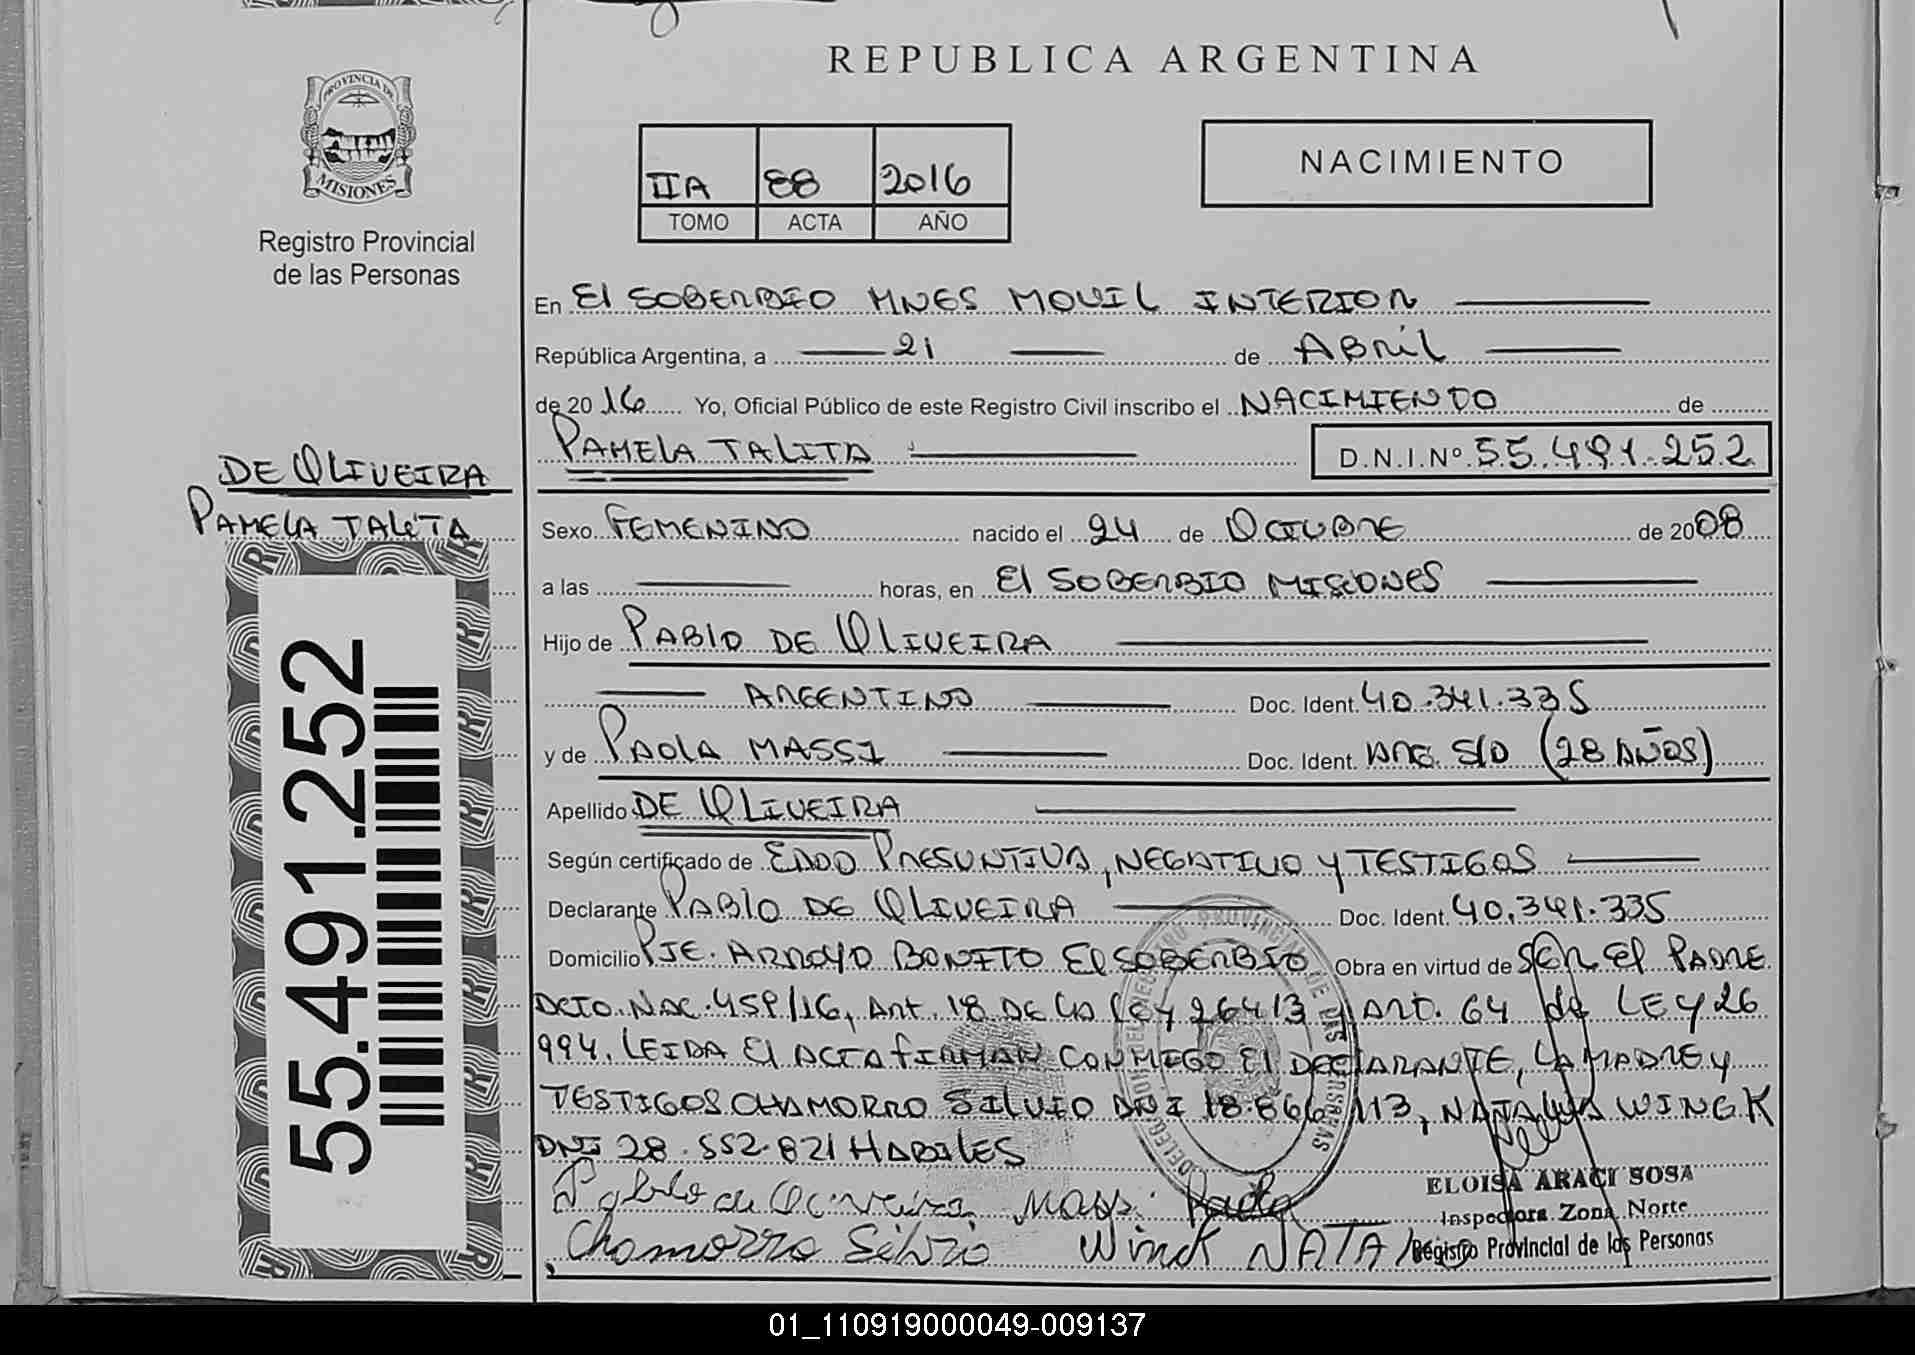 REPUBLICA ARGENTINA
PROVINCIA DE
MISIONES
Registro Provincial
de las Personas
IIA 88 2016
TOMO ACTA AÑO
NACIMIENTO
En El SOBERBIO MNES MOVIL INTERIOR
República Argentina, a 21 de Abril
de 2016 Yo, Oficial Público de este Registro Civil inscribo el NACIMIENTO de
PAMELA TALITA D.N.I.Nº 55.491.252
DE OLIVEIRA
PAMELA TALITA
Sexo FEMENINO nacido el 24 de OCTUBRE de 2008
a las horas, en El SOBERBIO MISIONES
Hijo de PABLO DE OLIVEIRA
ARGENTINO Doc. Ident. 40.341.335
y de PAOLA MASSI Doc. Ident. ARG. S/D (28 AÑOS)
Apellido DE OLIVEIRA
Según certificado de EDAD PRESUNTIVA, NEGATIVO Y TESTIGOS
Declarante PABLO DE OLIVEIRA Doc. Ident. 40.341.335
Domicilio PJE. ARROYO BONITO El SOBERBIO Obra en virtud de SER El PADRE
DCTO. NAC. 459/16, Art. 18 DE LA LEY 26413 y ART. 64 de LEY 26
994. LEIDA El ACTA FIRMAN CONMIGO El DECLARANTE, LA MADRE y
TESTIGOS CHAMORRO SILVIO DNI 18.866.113, NATALIA WINCK
DNI 28.552.821 HABILES
Pablo de Oliveira Massi Paola
Chamorro Silvio Winck NATALIA
ELOISA ARACI SOSA
Inspectora Zona Norte
Registro Provincial de las Personas
55.491.252
01_110919000049-009137